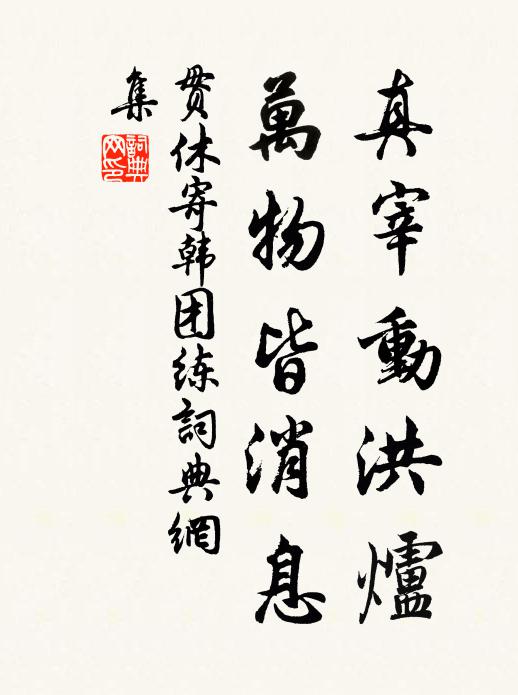 真宰動洪爐
萬物皆消息
贯休寄韩团练詞典網
集
詞典
网印